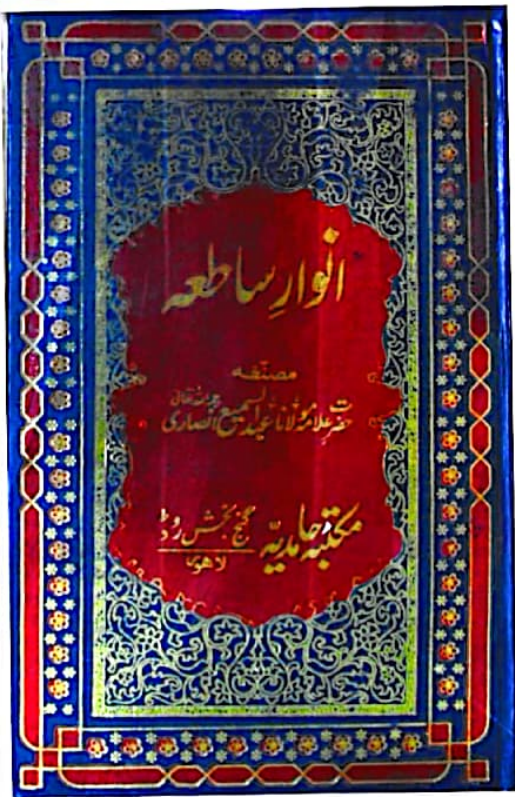 انوارِ ساطعہ
مصنفہ
حضرت علامہ مولانا عبدالسمیع انصاری رحمۃ اللہ تعالیٰ
مکتبہ حامدیہ گنج بخش روڈ
لاہور